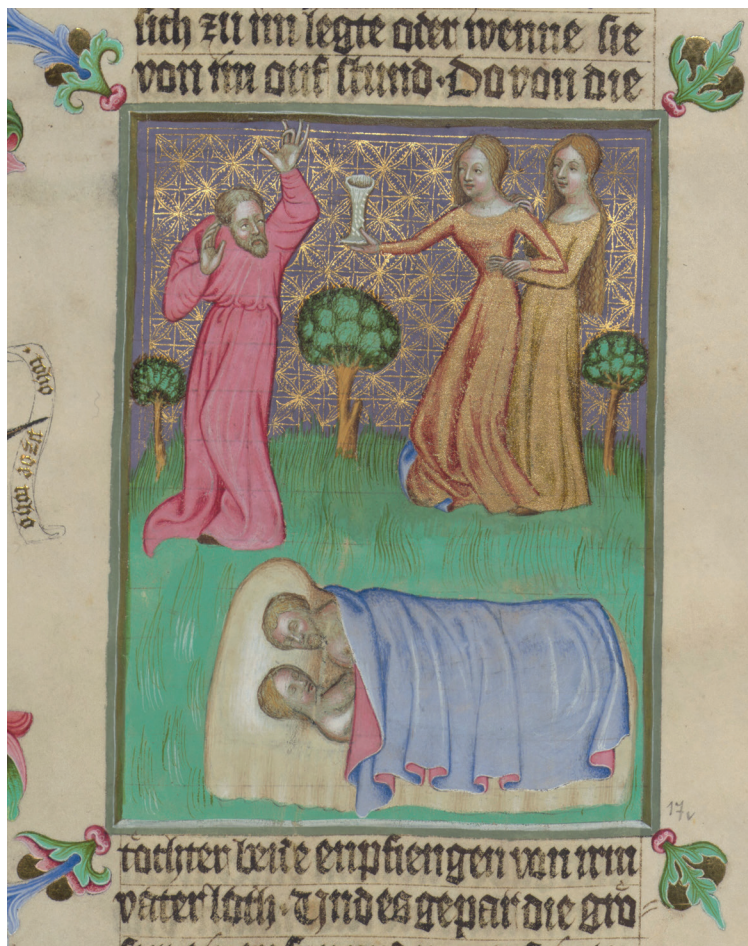 sich zu im legte oder wenne sie
von im auf stund · Do von die
17v
tochter beide enpfiengen von irm
vater loth · Und es gepar die gro